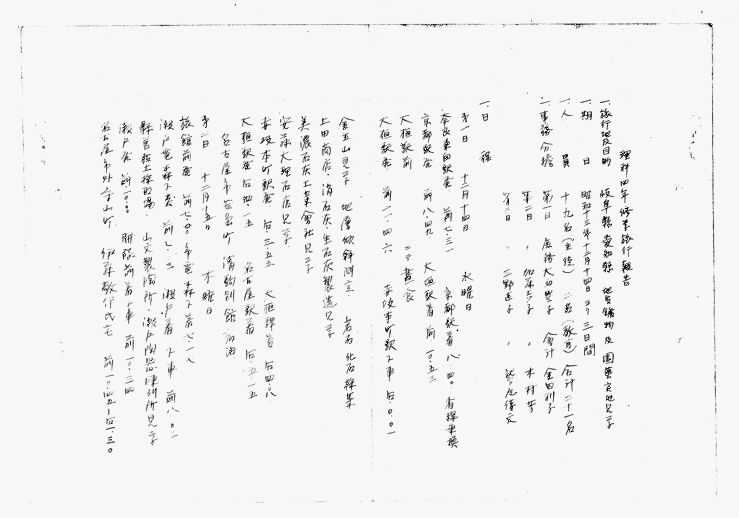 理科四年修学旅行報告
一、旅行地及目的 岐阜縣愛知縣 地質鑛物及園藝実地見学
一、期 日 昭和十三年十二月十四日ヨリ三日間
一、人 員 十九名(生徒) 二名(教官) 合計二十一名
一、事務分擔 第一日 庶務 大田 子 會計 金田 子
第二日 〃 子 〃 木村
第三日 〃 子 〃
一、日 程
第一日 十二月十四日 水曜日
奈良 駅発 前七・三一 京都駅着 八・四〇 省線乗換
京都駅発 前八・四九 大垣駅着 前一〇・五三
大垣駅前 ニテ晝食
大垣駅発 前一一・四六 赤坂本町駅下車 后〇・〇一
金生山見学 地層傾斜測定 岩石化石採集
上田商店、消石灰、生石灰製造見学
美濃石灰工業會社見学
安藤大理石店見学
赤坂本町駅発 后三・五五 大垣駅着 后四・〇八
大垣駅発 后四・一五 名古屋駅着 后五・一五
名古屋市 町 別館 泊
第二日 十二月十五日 木曜日
旅館前発 前七・〇〇 市電森下着 七・一八
瀬戸電森下発 前七・三 瀬戸着 下車 前八・〇二
縣営粘土採取場 山文製陶所、瀬戸陶器陳列所見学
瀬戸発 前一〇・〇〇 前着下車 前一〇・二四
名古屋市外守山町 伊藤 氏宅 前一〇・四五―后一・三〇